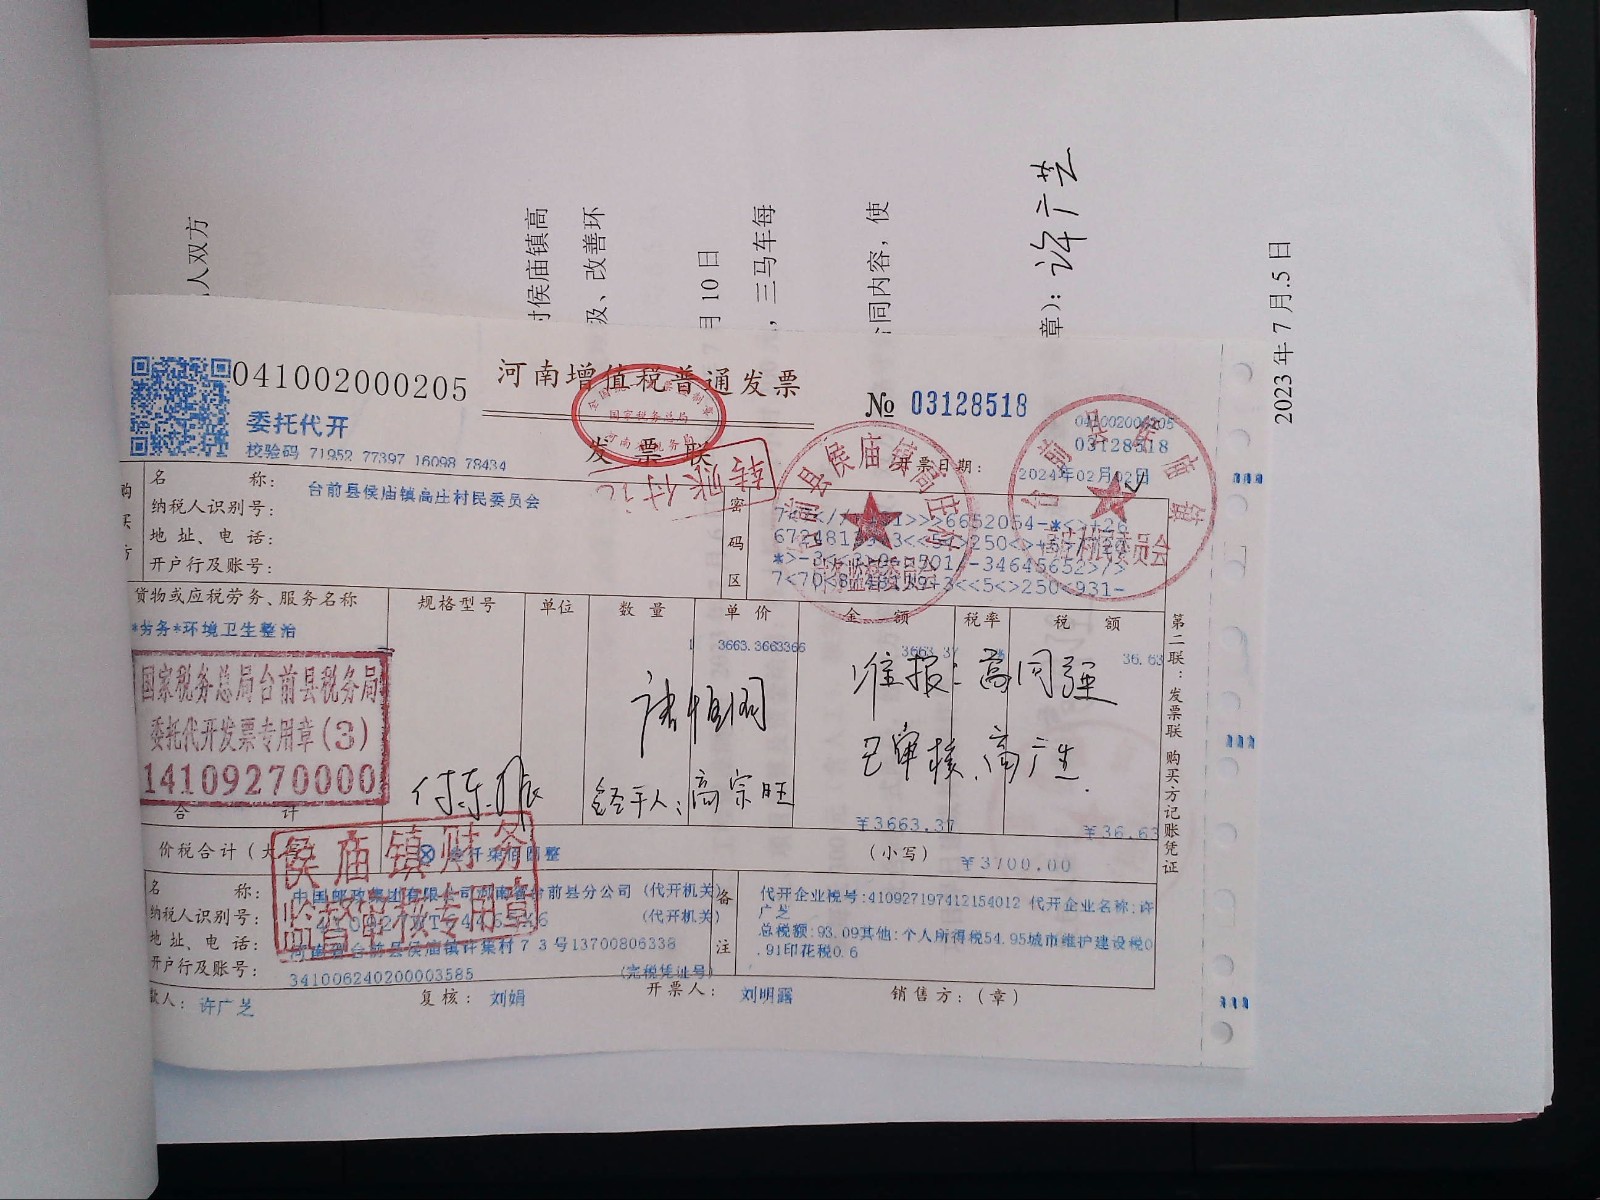 人双方
侯庙镇高
圾、改善环
月10日
，三马车每
同内容，使
章）：许广芝
2023年7月.5日
041002000205
河南增值税普通发票
№ 03128518
041002000205
03128518
委托代开
校验码 71952 77397 16098 78434
发票联
全国统一发票监制章
国家税务总局
河南省税务局
转账付讫
开票日期：
2024年02月02日
购买方
名称：
台前县侯庙镇高庄村民委员会
纳税人识别号：
地址、电话：
开户行及账号：
密码区
7<70<8
+3<<5<>250<931-
货物或应税劳务、服务名称
规格型号
单位
数量
单价
金额
税率
税额
*劳务*环境卫生整治
1
3663.3663366
3663.37
36.63
国家税务总局台前县税务局
委托代开发票专用章(3)
14109270000
准报：高同强
已审核、高广生
经手人：高宗旺
合计
￥3663.37
￥36.63
价税合计（大写）
叁仟柒佰圆整
（小写）
￥3700.00
侯庙镇财务
监督审核专用章
名称：
中国邮政集团有限公司河南省台前县分公司（代开机关）
纳税人识别号：
（代开机关）
地址、电话：
河南省台前县侯庙镇许集村73号13700806338
开户行及账号：
341006240200003585
（完税凭证号）
备注
代开企业税号:410927197412154012 代开企业名称:许
广芝
总税额:93.09其他:个人所得税54.95城市维护建设税0
.91印花税0.6
款人：许广芝
复核：刘娟
开票人：刘明露
销售方：（章）
第二联：发票联 购买方记账凭证